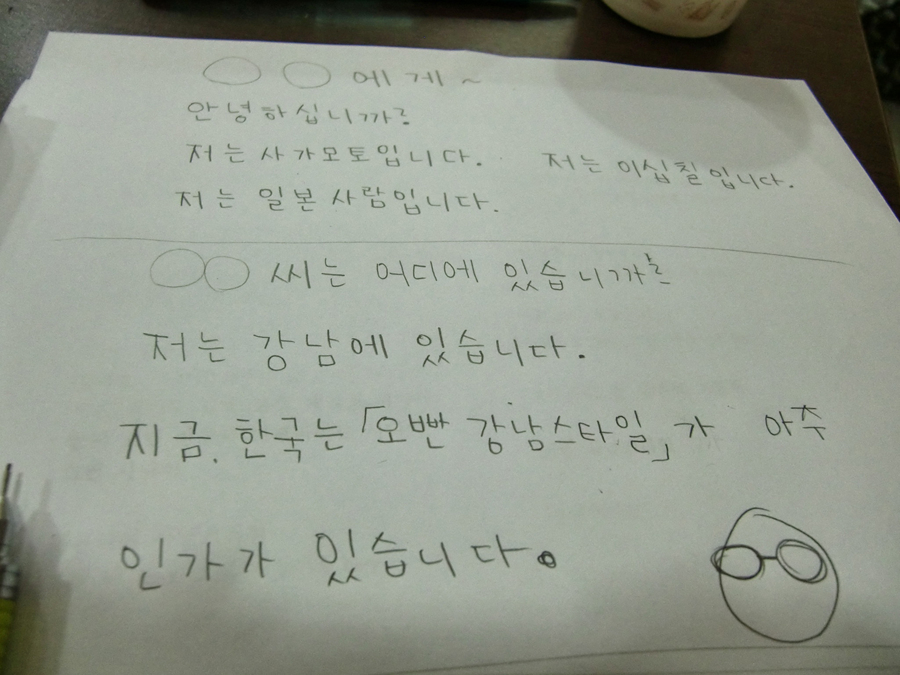 ○○에게~
안녕하십니까?
저는 사가모토입니다. 저는 이십칠입니다.
저는 일본사람입니다.
○○씨는 어디에 있습니까?
저는 강남에 있습니다.
지금. 한국는 「오빤 강남스타일」가 아주
인가가 있습니다.